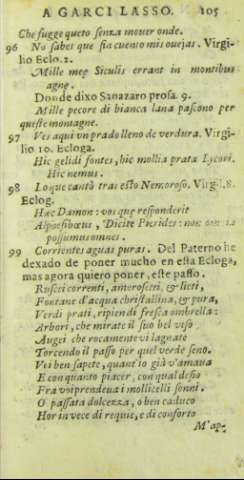 A GARCI LASSO. 105
Che fugge questo senza mouer onde.
96 No sabes que sia cuento mis ouejas. Virgi-
lio Eclo. 2.
Mille meę Siculis errant in montibus
agnę.
Donde dixo Sanazaro prosa. 9.
Mille pecore di bianca lana pascono per
queste montagne.
97 Ves aqui vn prado lleno de verdura. Virgi-
lio 10. Ecloga.
Hic gelidi fontes, hic mollia prata Lycori.
Hic nemus.
98 Lo que cantò tras esto Nemoroso. Virg. 8.
Eclog.
Hæc Damon: vos quę responderit
Alpoesibœus, Dicite Pierides: non omnia
possumus omnes.
99 Corrientes aguas puras. Del Paterno he
dexado de poner mucho en esta Ecloga,
mas agora quiero poner, este passo.
Ruscei correnti, amorosetti, & lieti,
Fontane d'acqua christallina, & pura,
Verdi prati, ripien di fresca ombrella:
Arbori, che mirate il suo bel viso
Augei che rocamente vi lagnate
Torcendo il passo per quel verde seno.
Voi ben sapete, quant'io già v'amaua
E con quanto piacer, con qual desio
Fra voi prendeua i mollicelli sonni.
O passata dolcezza, o ben caduco
Hor in vece di requie, e di conforto
M'ap-